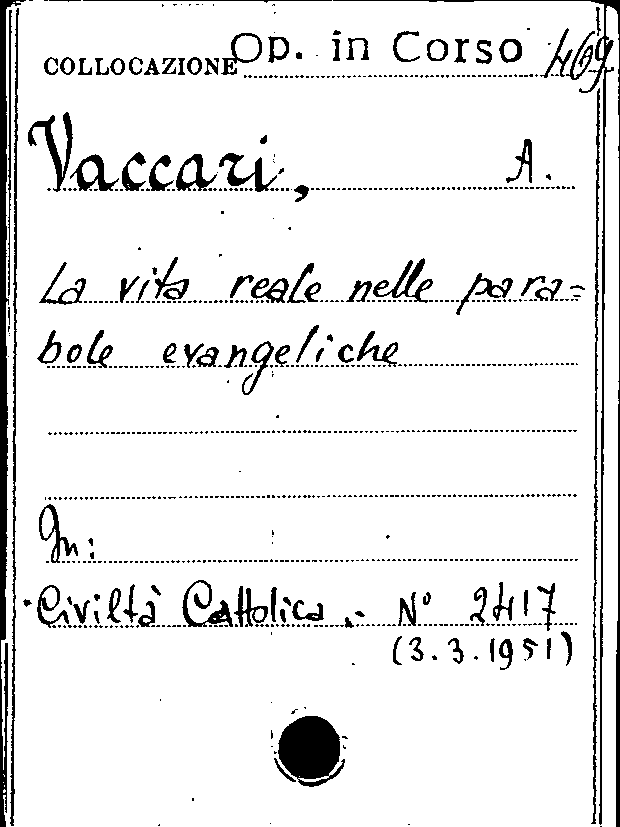 COLLOCAZIONE Op. in Corso 469
Vaccari, A.
La vita reale nelle para=
bole evangeliche
In:
Civiltà Cattolica.- N° 2417
(3.3.1951)